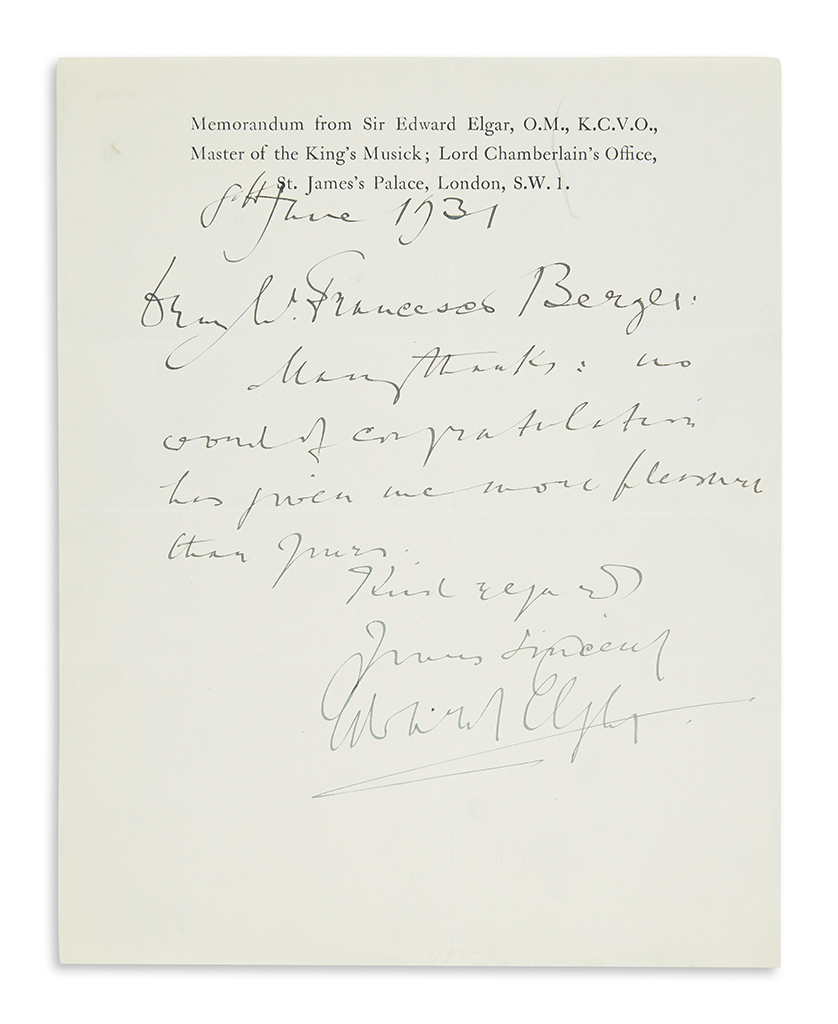 Memorandum from Sir Edward Elgar, O.M., K.C.V.O.,
Master of the King's Musick; Lord Chamberlain's Office,
St. James's Palace, London, S.W. 1.
8th June 1931
Dear Mr. Francesco Berger:
Many thanks: no
word of congratulation
has given me more pleasure
than yours.
Kind regards
Yours sincerely
Edward Elgar